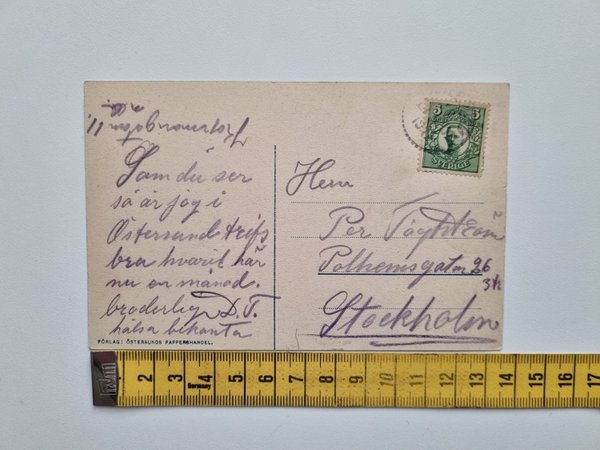 Som du ser
så är jag i
Östersund trifs
bra hvarit här
nu en månad.
broderligen D. T.
hälsa bekanta
FÖRLAG: ÖSTERSUNDS PAPPERSHANDEL.
5 5
SVERIGE
Herrn
Per
Polhemsgatan 26
3 tr
Stockholm
1 2 3 4 5 6 7 8 9 10 11 12 13 14 15 16 17
Germany